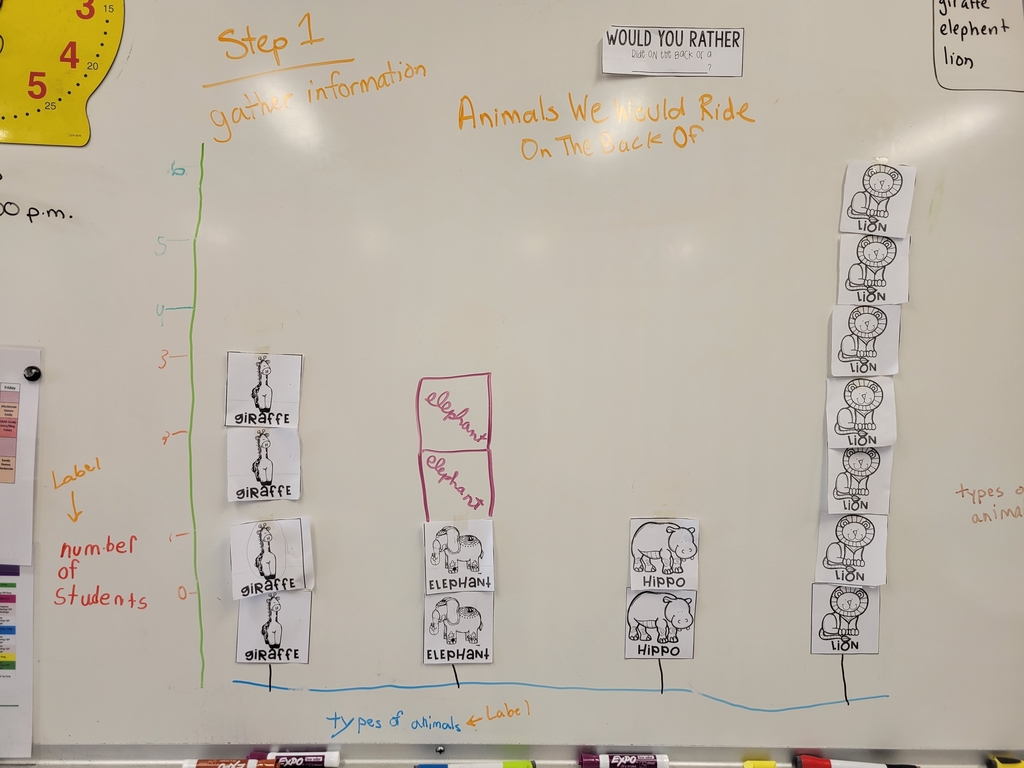 3
15
4
20
5
25
Step 1
gather information
WOULD YOU RATHER
Ride on the Back of a
?
giraffe
elephent
lion
Animals We Would Ride
On The Back Of
00 p.m.
6
5
4
3
2
1
0
LION
LION
LION
LION
LION
LION
LION
GIRAFFE
GIRAFFE
GIRAFFE
GIRAFFE
elephant
elephant
ELEPHANT
ELEPHANT
HIPPO
HIPPO
Label
number
of
Students
types of animals
Label
types o
anima
Friday
EXPO
EXPO
EXPO